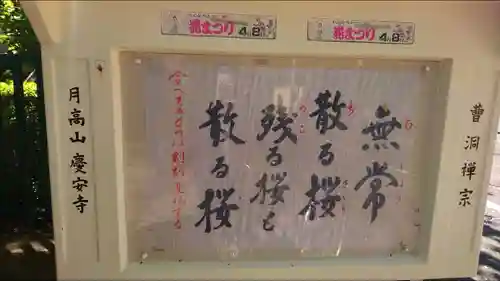 花まつり 4月8日
花まつり 4月8日
曹洞禅宗
無常
散る桜
残る桜も
散る桜
月高山 慶安寺